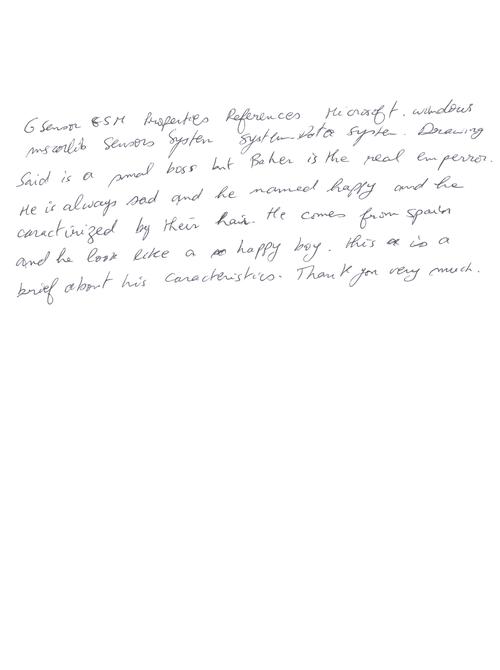 GSensor GSM Properties References Microsoft.windows
mscorlib Sensors System System.Data System.Drawing
Said is a smal boss but Baher is the real emperror.
He is always sad and he named happy and he
caractirized by their hair. He comes from spain
and he look like a happy boy. this is a
brief about his caracteristics. Thank you very much.